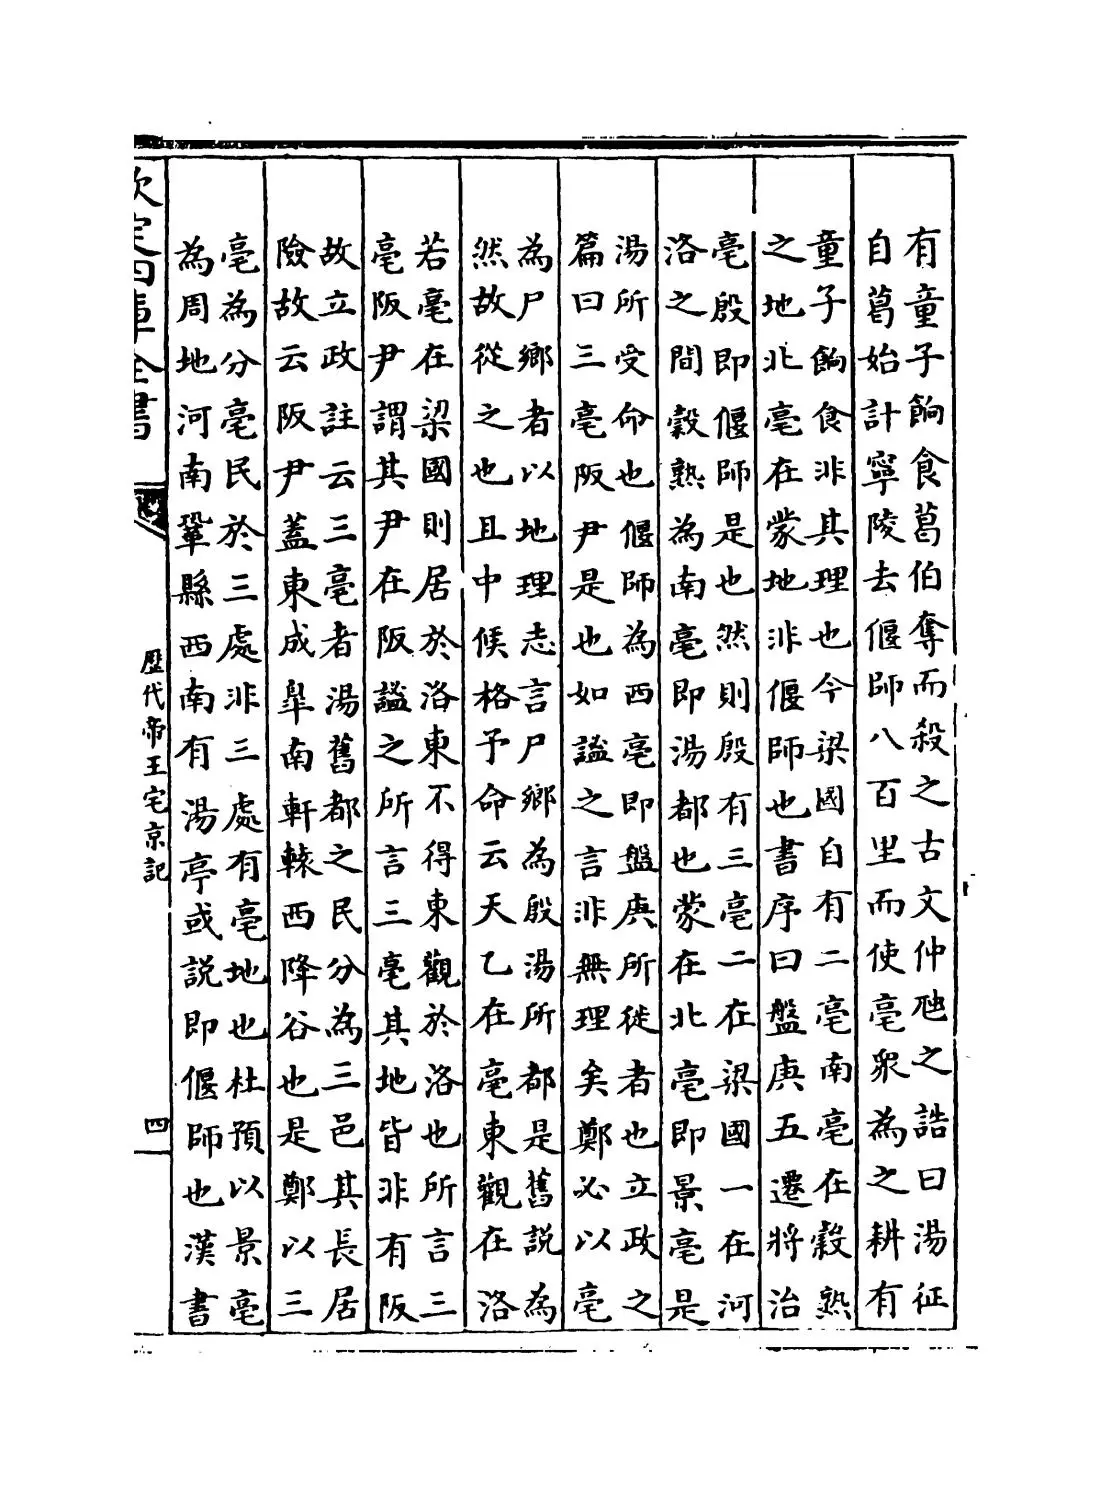 有童子餉食葛伯奪而殺之古文仲虺之誥曰湯征
自葛始計寧陵去偃師八百里而使亳衆為之耕有
童子餉食非其理也今梁國自有二亳南亳在穀熟
之地北亳在蒙地非偃師也書序曰盤庚五遷將治
亳殷即偃師是也然則殷有三亳二在梁國一在河
洛之間穀熟為南亳即湯都也蒙在北亳即景亳是
湯所受命也偃師為西亳即盤庚所徙者也立政之
篇曰三亳阪尹是也如謐之言非無理矣鄭必以亳
為尸鄉者以地理志言尸鄉為殷湯所都是舊説為
然故從之也且中候格予命云天乙在亳東觀在洛
若亳在梁國則居於洛東不得東觀於洛也所言三
亳阪尹謂其尹在阪謐之所言三亳其地皆非有阪
故立政註云三亳者湯舊都之民分為三邑其長居
險故云阪尹蓋東成臯南轘轅西降谷也是鄭以三
亳為分亳民於三處非三處有亳地也杜預以景亳
為周地河南鞏縣西南有湯亭或説即偃師也漢書
欽定四庫全書
歷代帝王宅京記
四